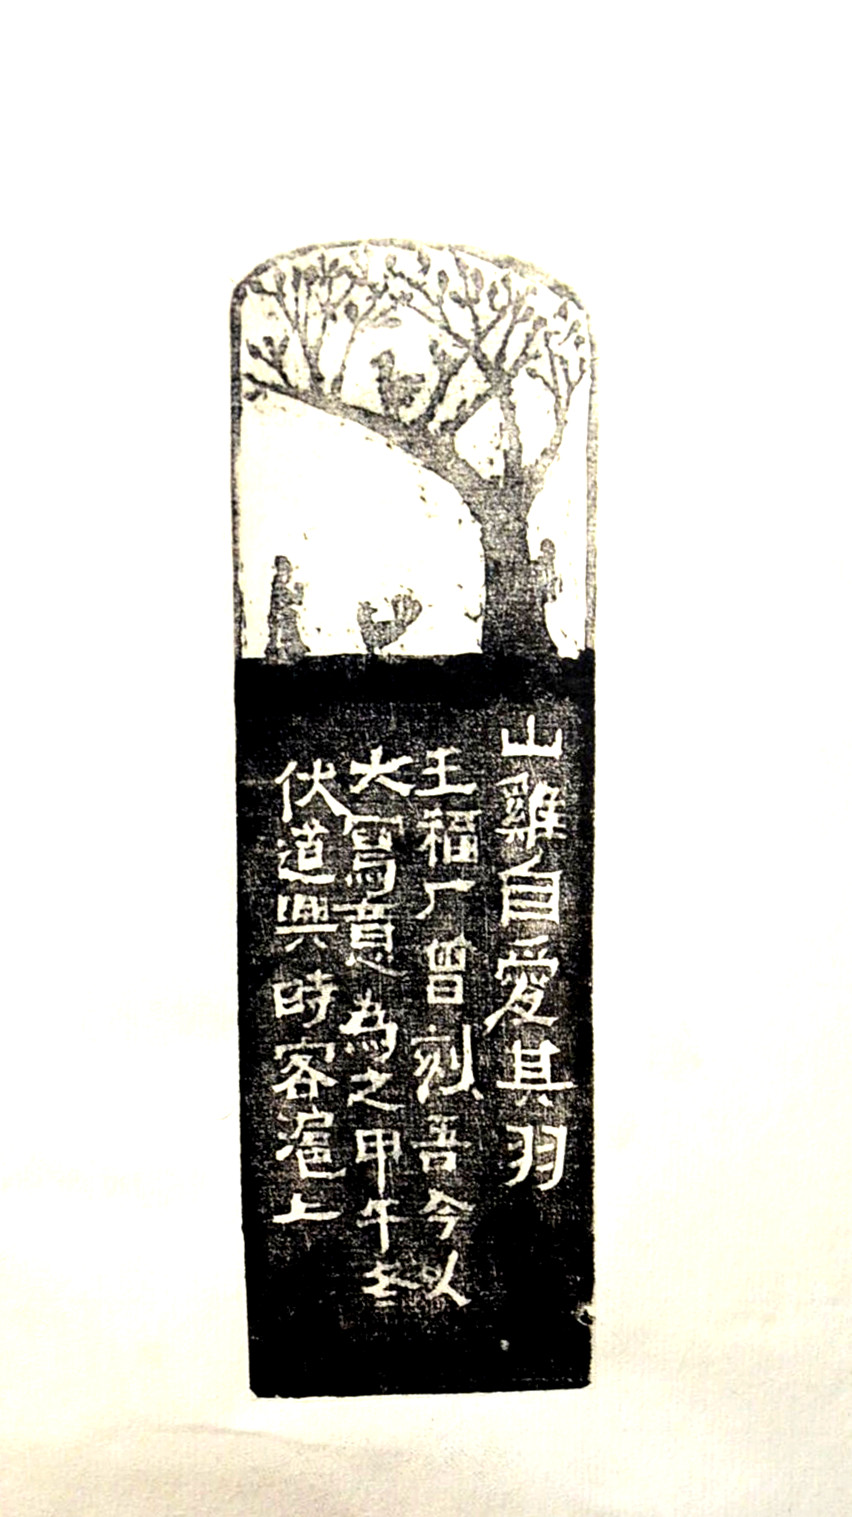 山雞自愛其羽
王福厂曾刻吾今以
大寫意為之甲午冬
伏道興時客滬上